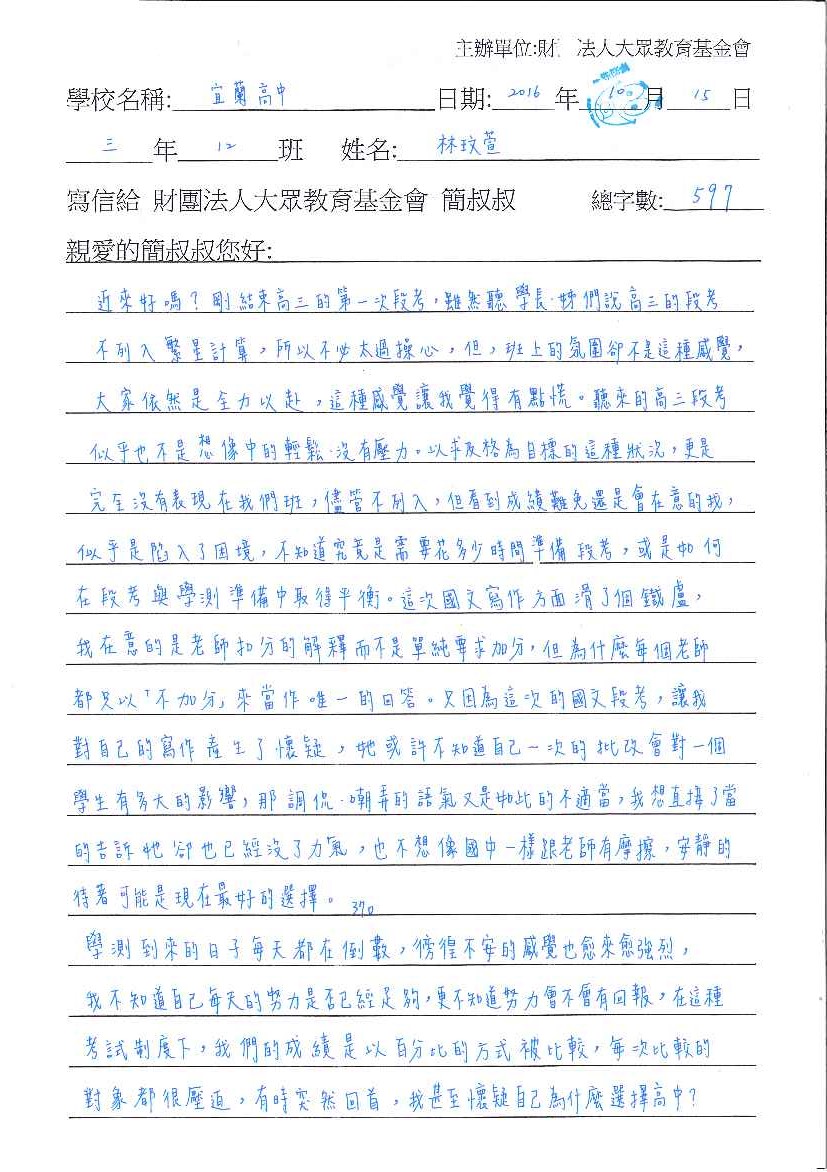 主辦單位:財 法人大眾教育基金會
學校名稱: 宜蘭高中 日期: 2016 年 10 月 15 日
三 年 12 班 姓名: 林玟萱
寫信給 財團法人大眾教育基金會 簡叔叔 總字數: 597
親愛的簡叔叔您好:
近來好嗎？剛結束高三的第一次段考，雖然聽學長、姊們說高三的段考
不列入繁星計算，所以不必太過操心，但，班上的氛圍卻不是這種感覺，
大家依然是全力以赴，這種感覺讓我覺得有點慌。聽來的高三段考
似乎也不是想像中的輕鬆、沒有壓力。以求及格為目標的這種狀況，更是
完全沒有表現在我們班，儘管不列入，但看到成績難免還是會在意的我，
似乎是陷入了困境，不知道究竟是需要花多少時間準備段考，或是如何
在段考與學測準備中取得平衡。這次國文寫作方面滑了個鐵盧，
我在意的是老師扣分的解釋而不是單純要求加分，但為什麼每個老師
都只以「不加分」來當作唯一的回答。只因為這次的國文段考，讓我
對自己的寫作產生了懷疑，她或許不知道自己一次的批改會對一個
學生有多大的影響，那調侃、嘲弄的語氣又是如此的不適當，我想直接了當
的告訴她卻也已經沒了力氣，也不想像國中一樣跟老師有摩擦，安靜的
待著可能是現在最好的選擇。 370
學測到來的日子每天都在倒數，徬徨不安的感覺也愈來愈強烈，
我不知道自己每天的努力是否已經足夠，更不知道努力會不會有回報，在這種
考試制度下，我們的成績是以百分比的方式被比較，每次比較的
對象都很壓迫，有時突然回首，我甚至懷疑自己為什麼選擇高中？